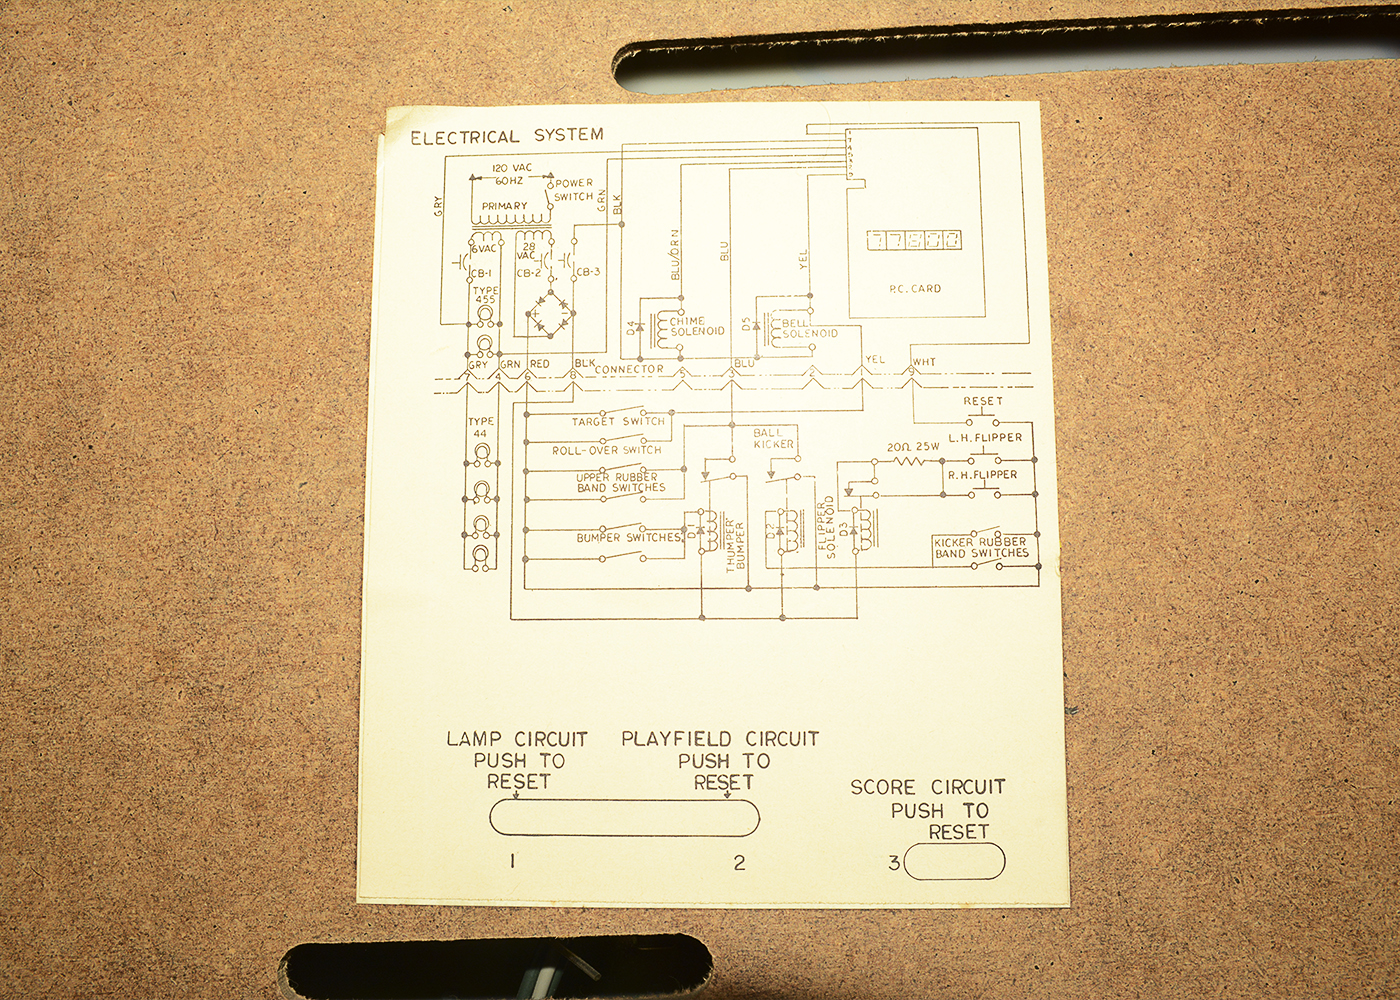 ELECTRICAL SYSTEM
120 VAC
60HZ
POWER
SWITCH
PRIMARY
GRY
GRN
BLK
6VAC
28
VAC
CB-1
CB-2
CB-3
TYPE
455
BLU/ORN
BLU
YEL
77800
P.C. CARD
D4
CHIME
SOLENOID
D5
BELL
SOLENOID
GRY
GRN
RED
BLK
CONNECTOR
BLU
YEL
WHT
7
4
6
8
5
3
2
1
9
TYPE
44
TARGET SWITCH
ROLL-OVER SWITCH
UPPER RUBBER
BAND SWITCHES
BUMPER SWITCHES
BALL
KICKER
D1
THUMPER
BUMPER
D2
FLIPPER
SOLENOID
D3
20Ω 25W
RESET
L.H. FLIPPER
R.H. FLIPPER
KICKER RUBBER
BAND SWITCHES
LAMP CIRCUIT
PUSH TO
RESET
PLAYFIELD CIRCUIT
PUSH TO
RESET
SCORE CIRCUIT
PUSH TO
RESET
1
2
3